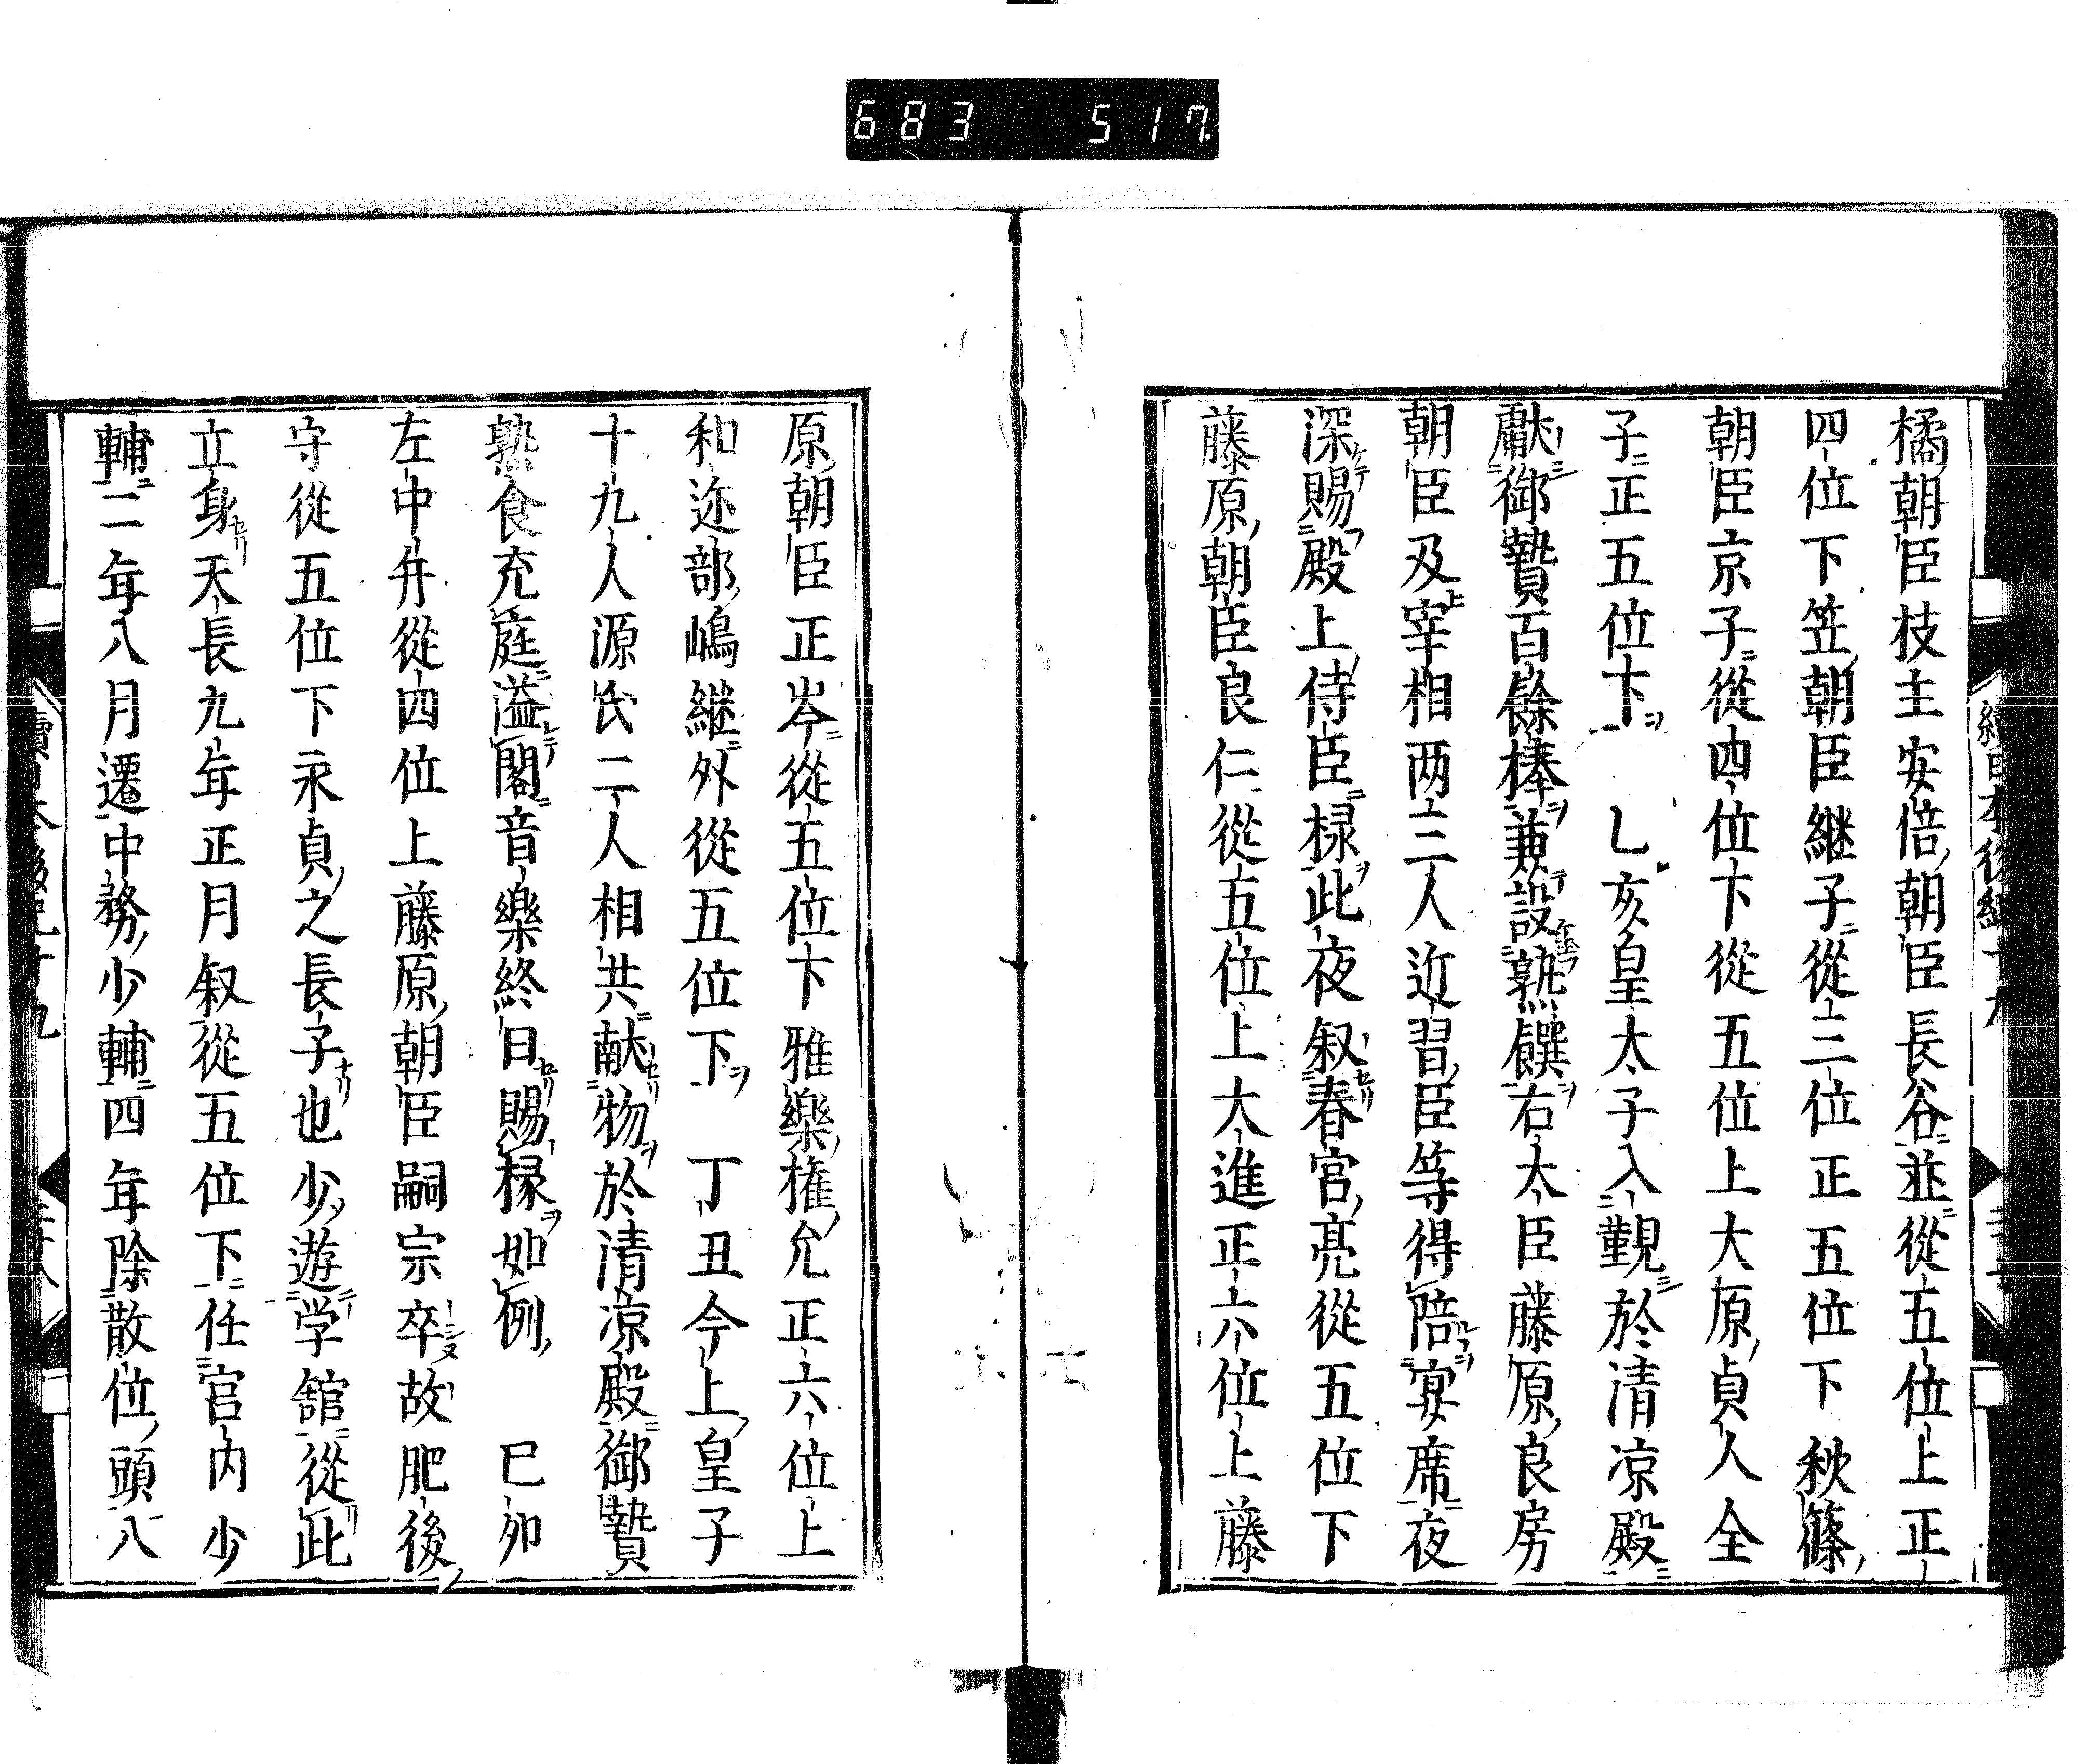 683 517
橘朝臣枝主安倍朝臣長谷並從五位上正
四位下笠朝臣継子從三位正五位下秋篠
朝臣京子從四位下從五位上大原貞人全
子正五位下 乙亥皇太子入覲於清凉殿
獻御贄百餘捧兼設熟饌右大臣藤原良房
朝臣及宰相两三人近習臣等得陪宴席夜
深賜殿上侍臣禄此夜叙春宮亮從五位下
藤原朝臣良仁從五位上大進正六位上藤
原朝臣正岑從五位下雅樂權允正六位上
和迩部嶋継外從五位下 丁丑今上皇子
十九人源氏二人相共献物於清凉殿御贄
熟食充庭溢閣音樂終日賜禄如例 已卯
左中弁從四位上藤原朝臣嗣宗卒故肥後
守從五位下永貞之長子也少遊学舘從此
立身天長九年正月叙從五位下任宮内少
輔二年八月遷中務少輔四年除散位頭八